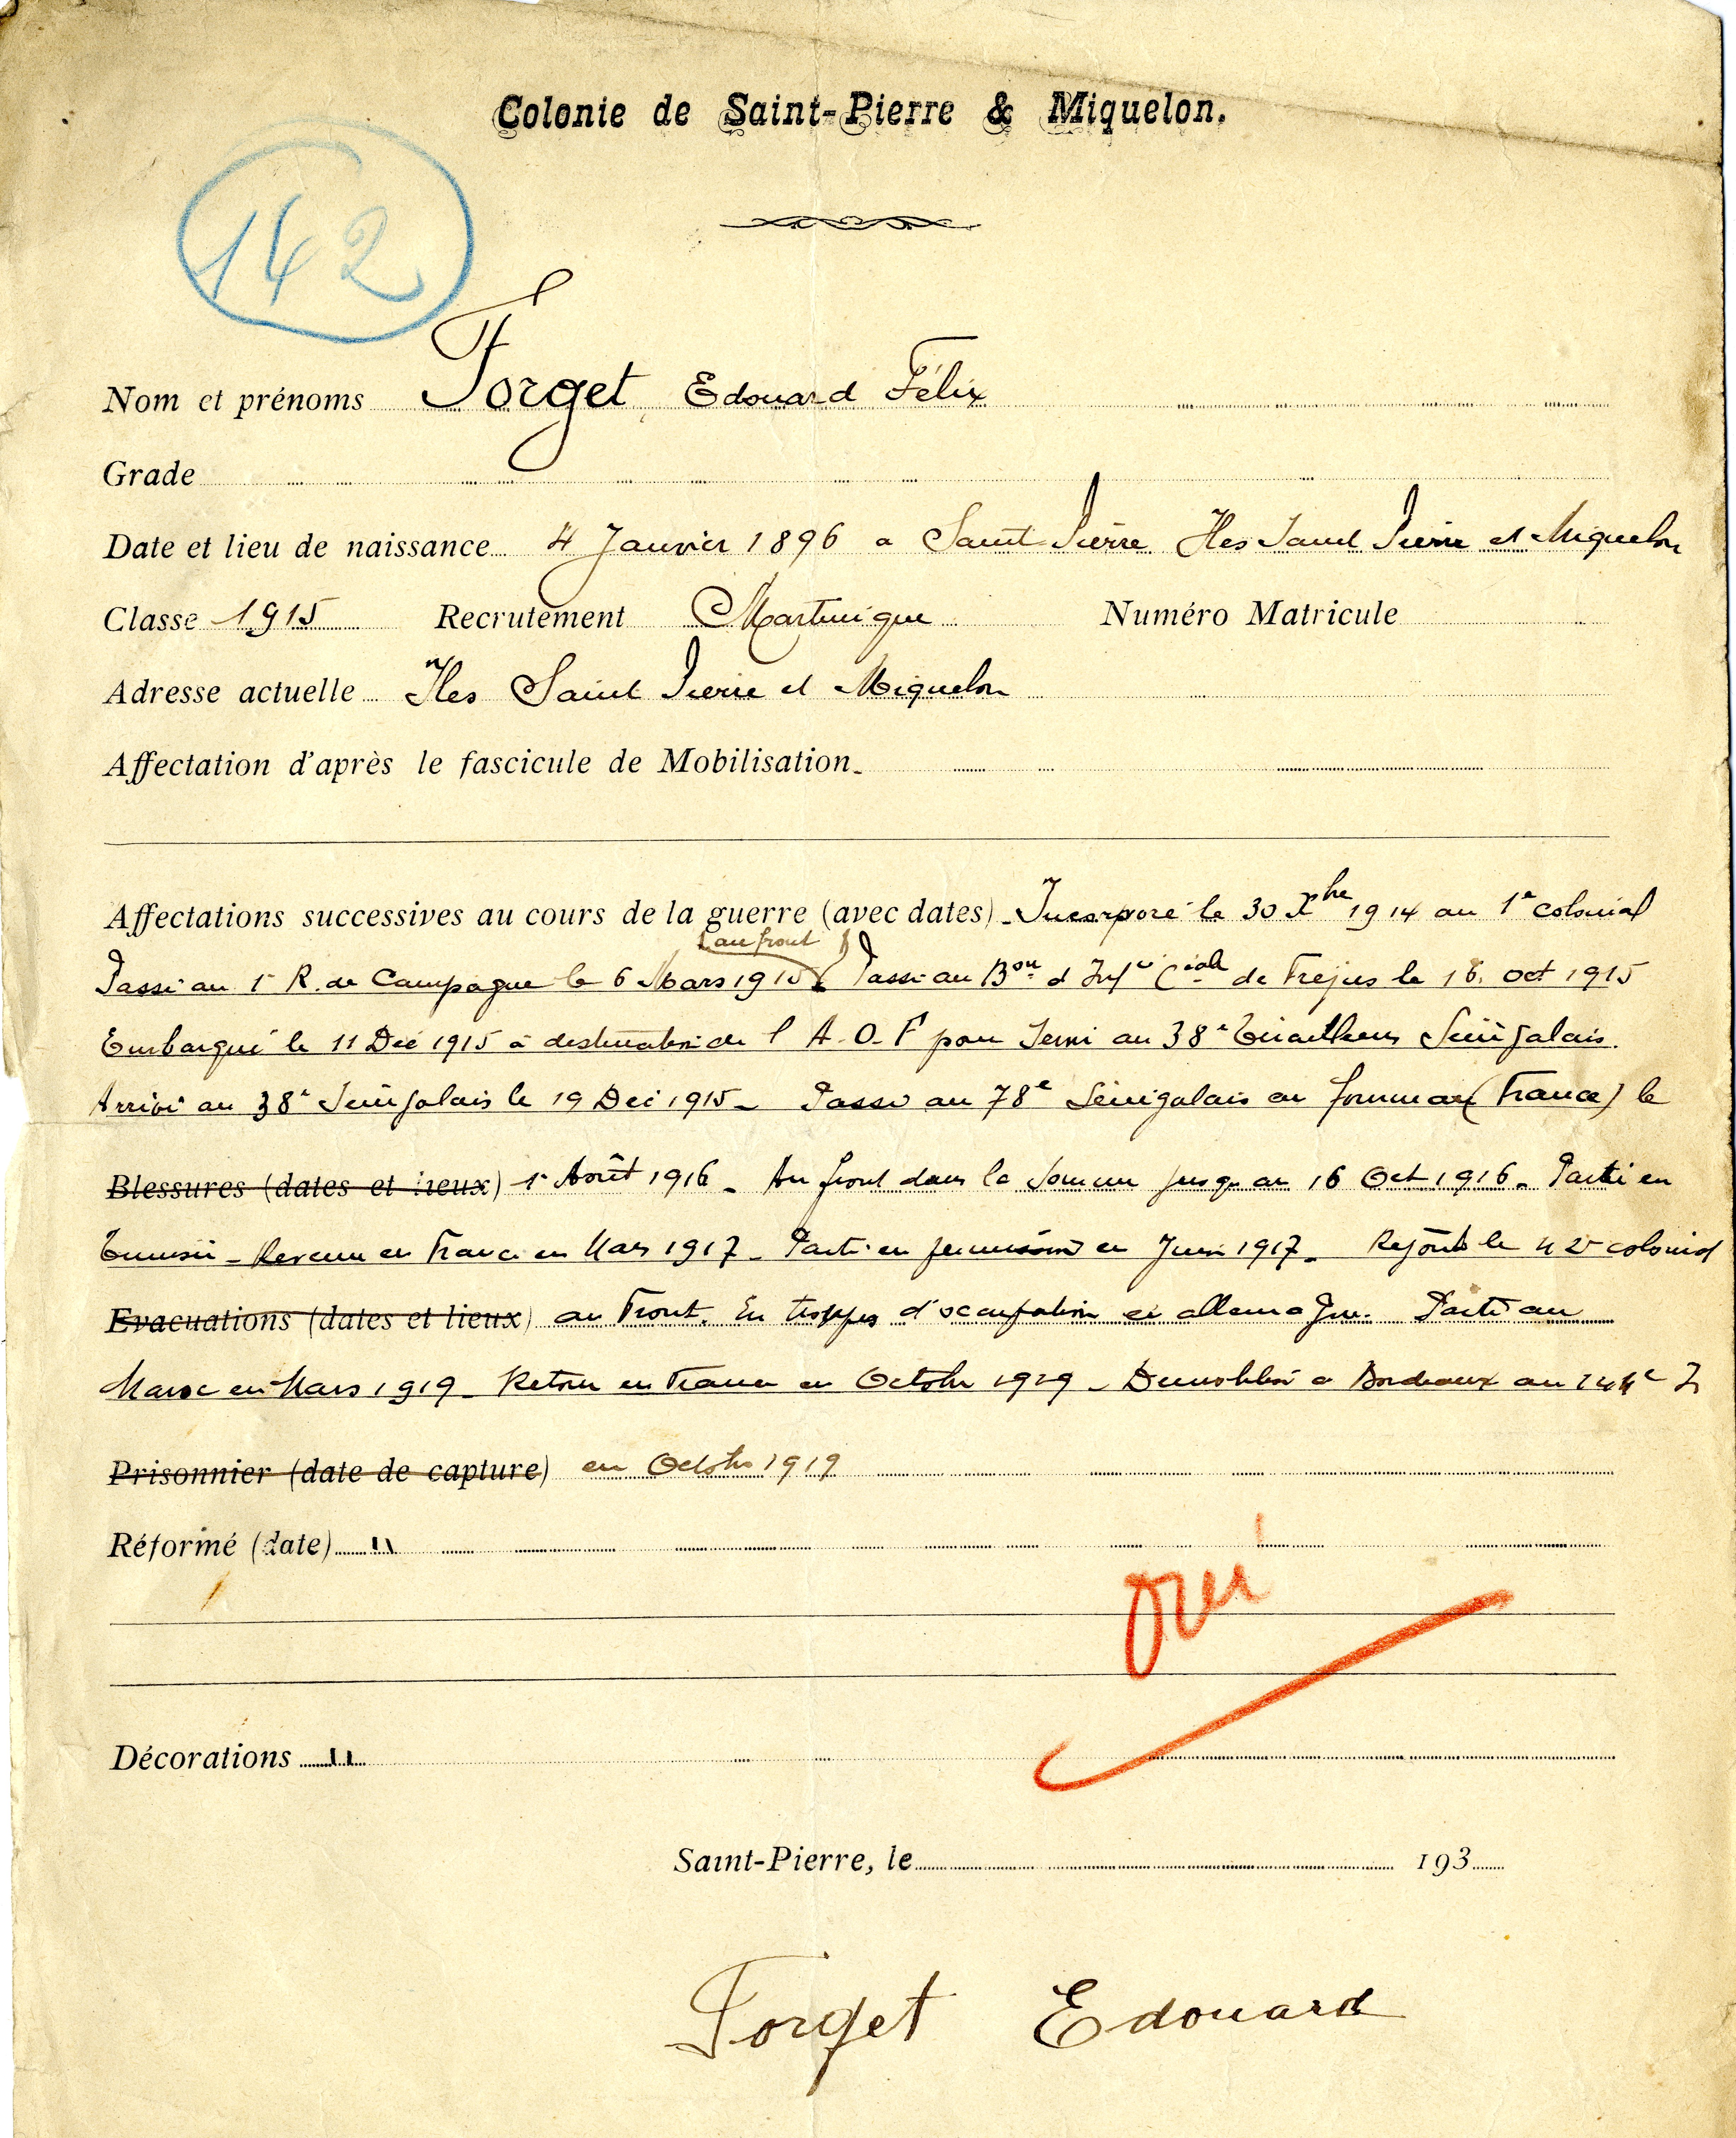 Colonie de Saint-Pierre & Miquelon.
142
Nom et prénoms Forget Edouard Félix
Grade
Date et lieu de naissance 4 Janvier 1896 a Saint Pierre Iles Saint Pierre et Miquelon
Classe 1915 Recrutement Martinique Numéro Matricule
Adresse actuelle Iles Saint Pierre et Miquelon
Affectation d'après le fascicule de Mobilisation
Affectations successives au cours de la guerre (avec dates) Incorporé le 30 Xbre 1914 au 1e colonial
(au front)
Passé au 1r R. de Campagne le 6 Mars 1915 Passé au Bon d Infie Ciale de Frejus le 16 oct 1915
Embarqué le 11 Dec 1915 à destination de l A.O.F pour Servi au 38e Tirailleurs Sénégalais.
Arrivé au 38e Sénégalais le 19 Dec 1915 - Passé au 78e Sénégalais en (France) le
Blessures (dates et lieux) 1r Août 1916 - Au front dans la Somme jusqu au 16 Oct 1916 - Parti en
Tunisie - Revenu en France en Mars 1917 - Parti en permission en Juin 1917 - Rejoint le 42e colonial
Evacuations (dates et lieux) au Front. En troppes d'occupation en allemagne. Parti au
Maroc en Mars 1919 - Retour en France en Octobre 1919 - Demobilisé a Bordeaux au 144e
Prisonnier (date de capture) en Octobre 1919
Réformé (date) "
oui
Décorations "
Saint-Pierre, le 193
Forget Edouard